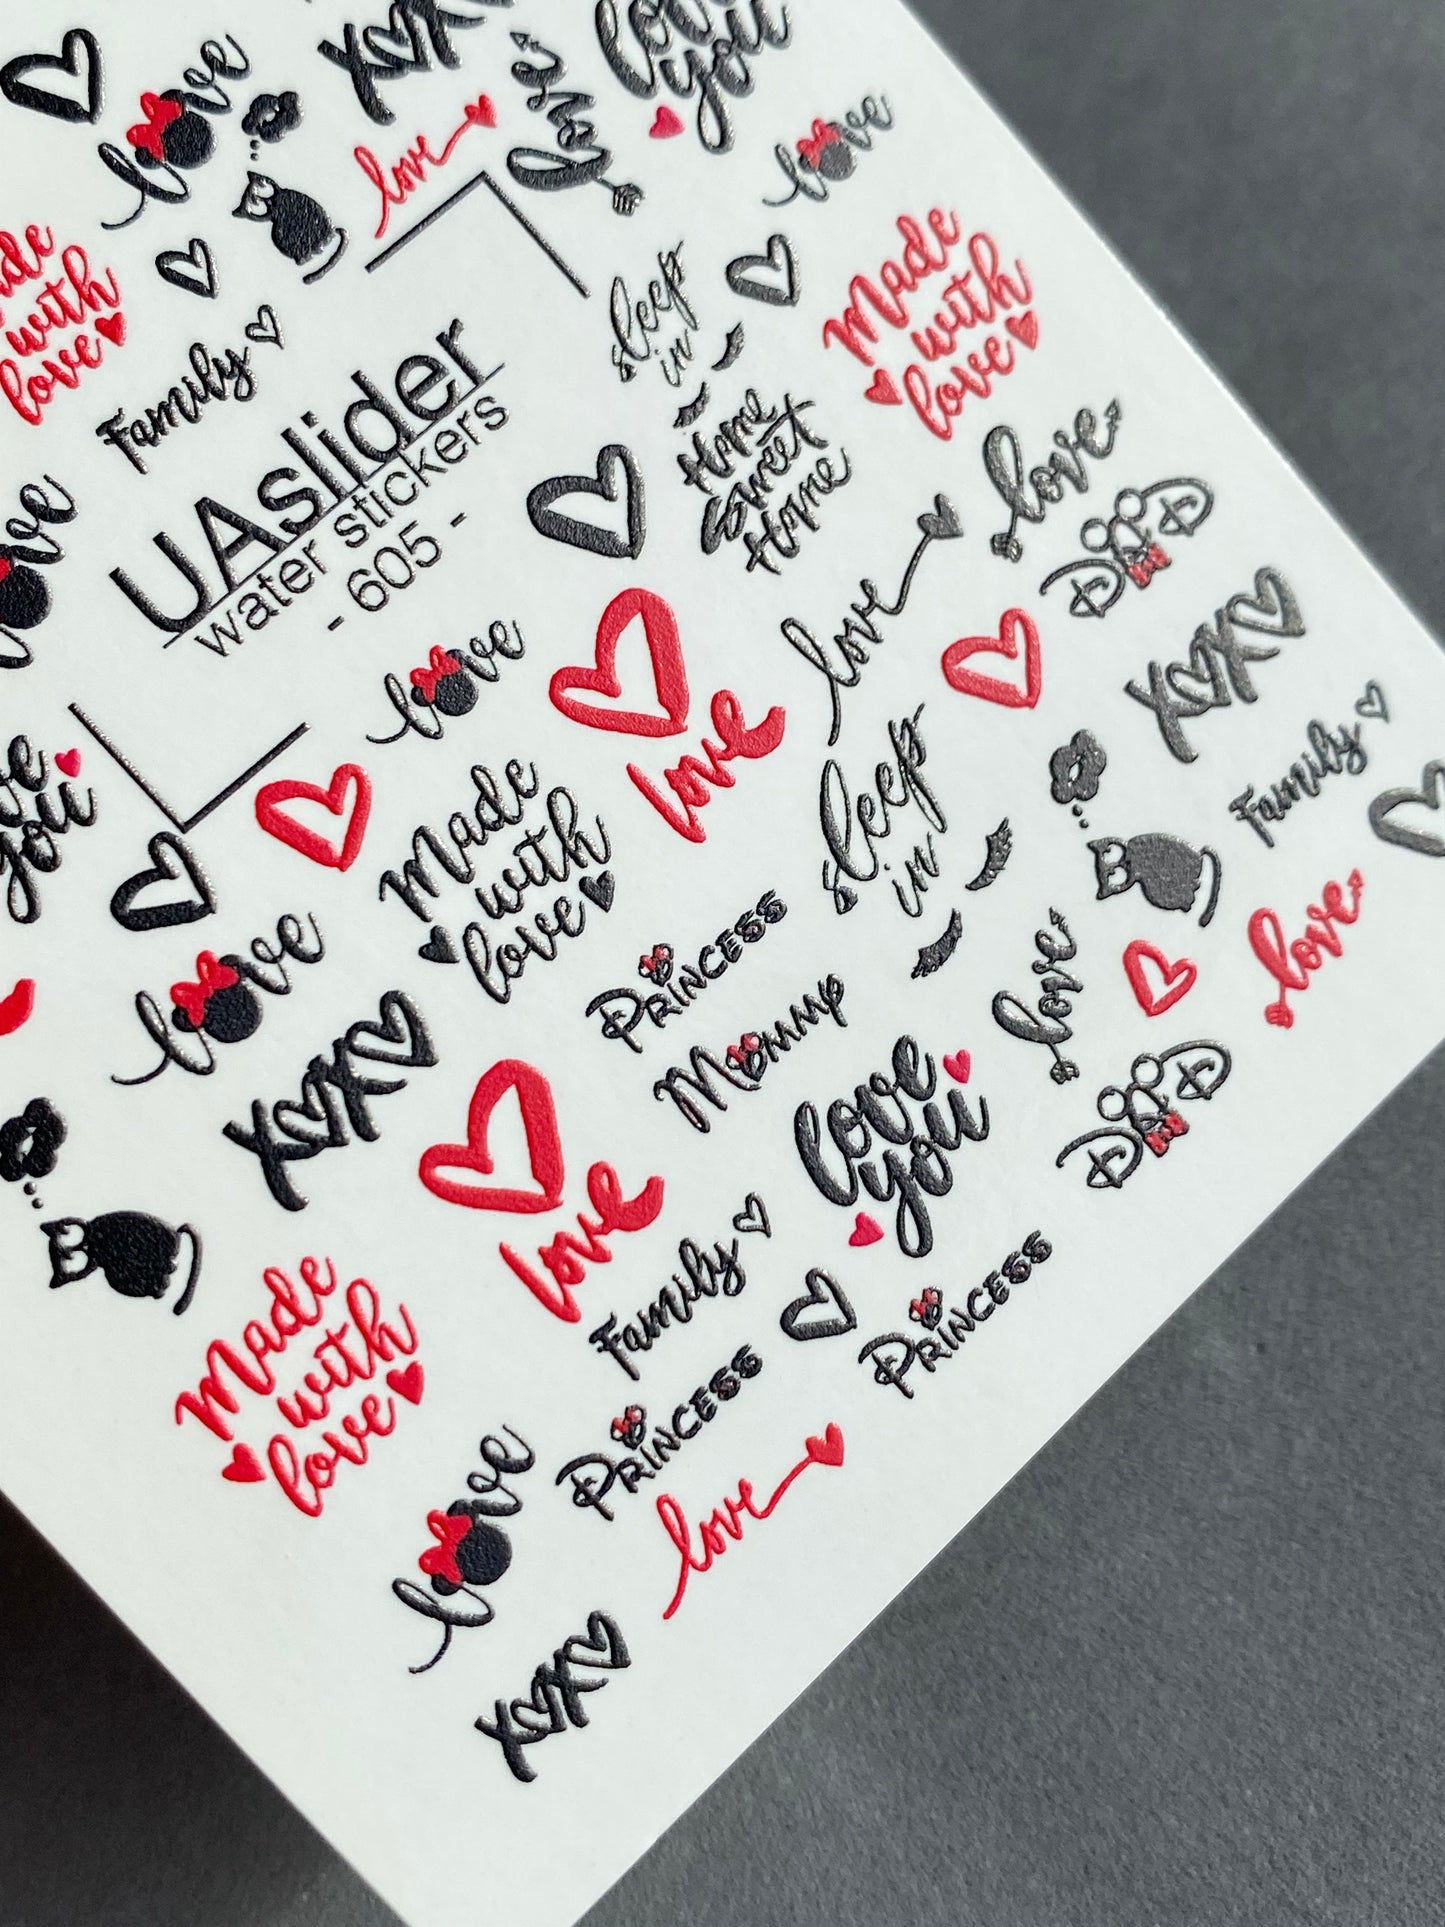 love
XOXO
love
love
love
you
love
made
with
love
Family
sleep
in
made
with
love
UAslider
water stickers
- 605 -
Home
Sweet
Home
love
DAD
love
love
love
XOXO
you
made
with
love
love
sleep
in
Family
love
Princess
XOXO
Mommy
love
love
love
you
DAD
made
with
love
love
Family
Princess
Princess
love
love
XOXO